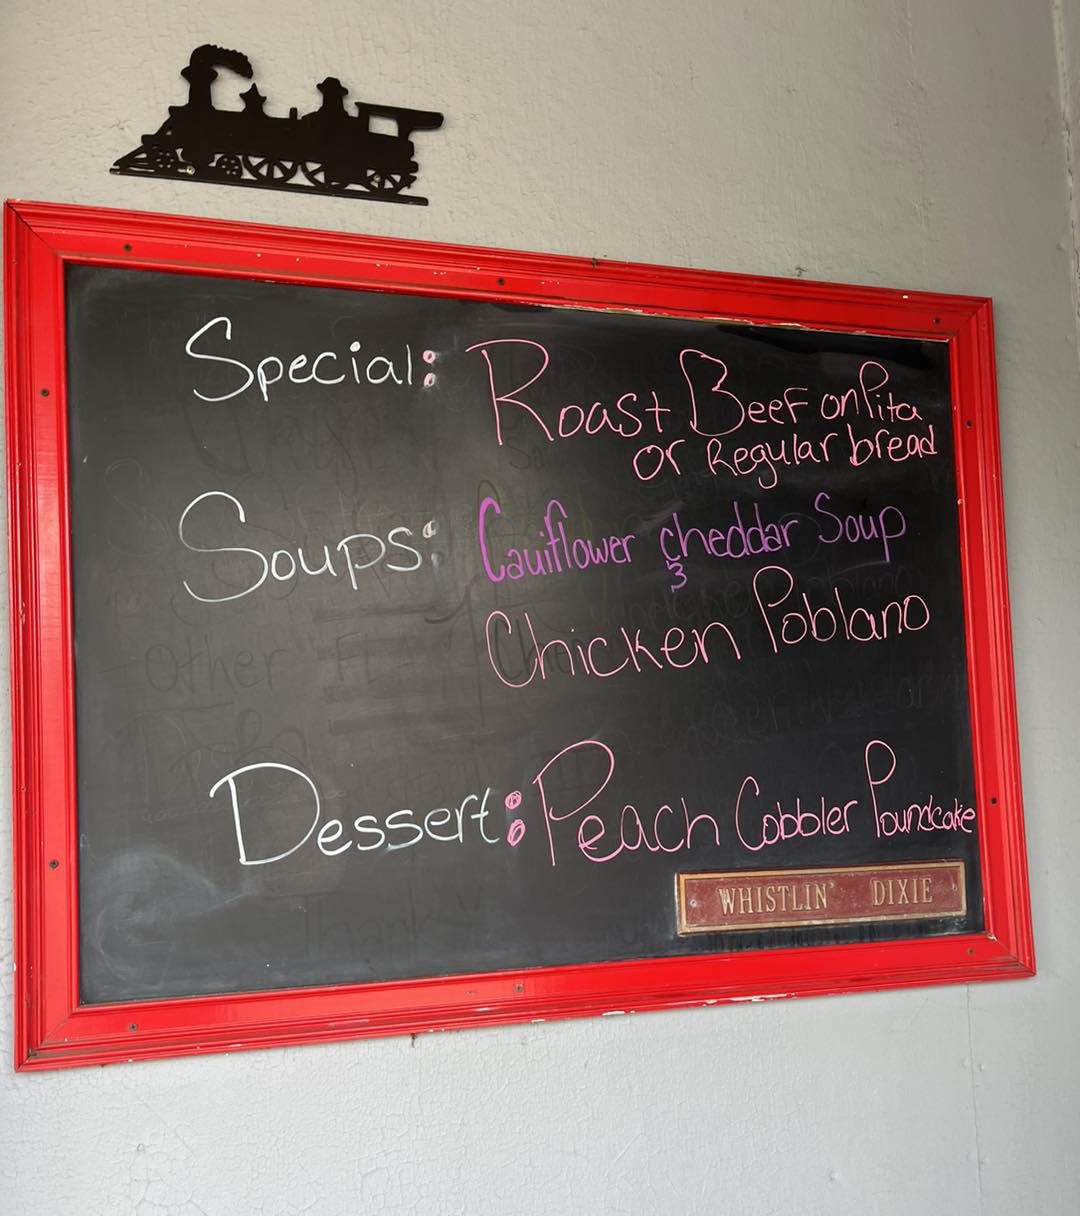 Special: Roast Beef on Pita
or Regular bread
Soups: Cauiflower cheddar Soup
3
Chicken Poblano
Dessert: Peach Cobbler Poundcake
WHISTLIN' DIXIE